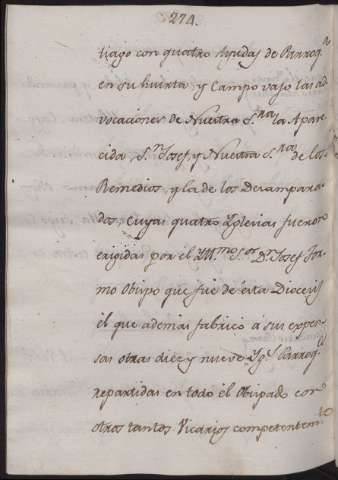 274.
tiago con quatro Ayudas de Parroq.a
en su huerta, y Campo vajo las ad
vocaciones de Nuestra S.ra la Apare
cida S.n Josef, y Nuestra S.ra de los
Remedios, y la de los Desampara
dos, cuyas quatro Yglesias fueron
erigidas por el Yll.mo S.or D.n Josef Tor
mo Obispo que fue de ésta Diocesis
él que además fabricó á sus expen
sas otras diez y nueve Ygl.s Parroq.s
repartidas en todo él Obispado con
otros tantos Vicarios competentem.te